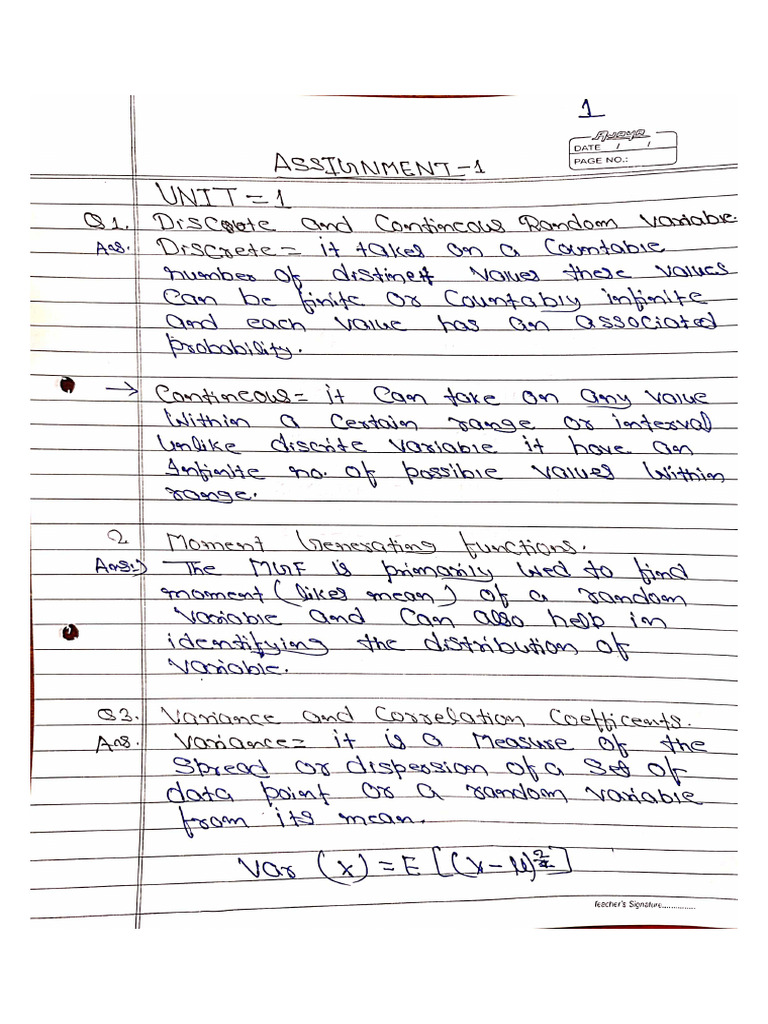 1
Ajaya
DATE / /
PAGE NO.:
ASSIGNMENT-1
UNIT=1
Q1. Discrete and Contincous Random Variable.
Ans. Discrete = it takes on a Countable
number of distinct values these values
can be finite or countably infinite
and each value has an associated
probability.
→ Contincous = it can take on any value
within a certain range or interval
unlike discrite variable it have an
Infinite no. of possible values within
range.
2 Moment Generating functions.
Ans:) The MGF is primarily used to find
moment (likes mean) of a random
variable and can also help in
identifying the distribution of
variable.
Q3. Variance and Correlation Coefficents.
Ans. Variance= it is a Measure of the
spread or dispersion of a set of
data point or a random variable
from its mean.
Var (x) = E [(x-μ)²]
Teacher's Signature...............